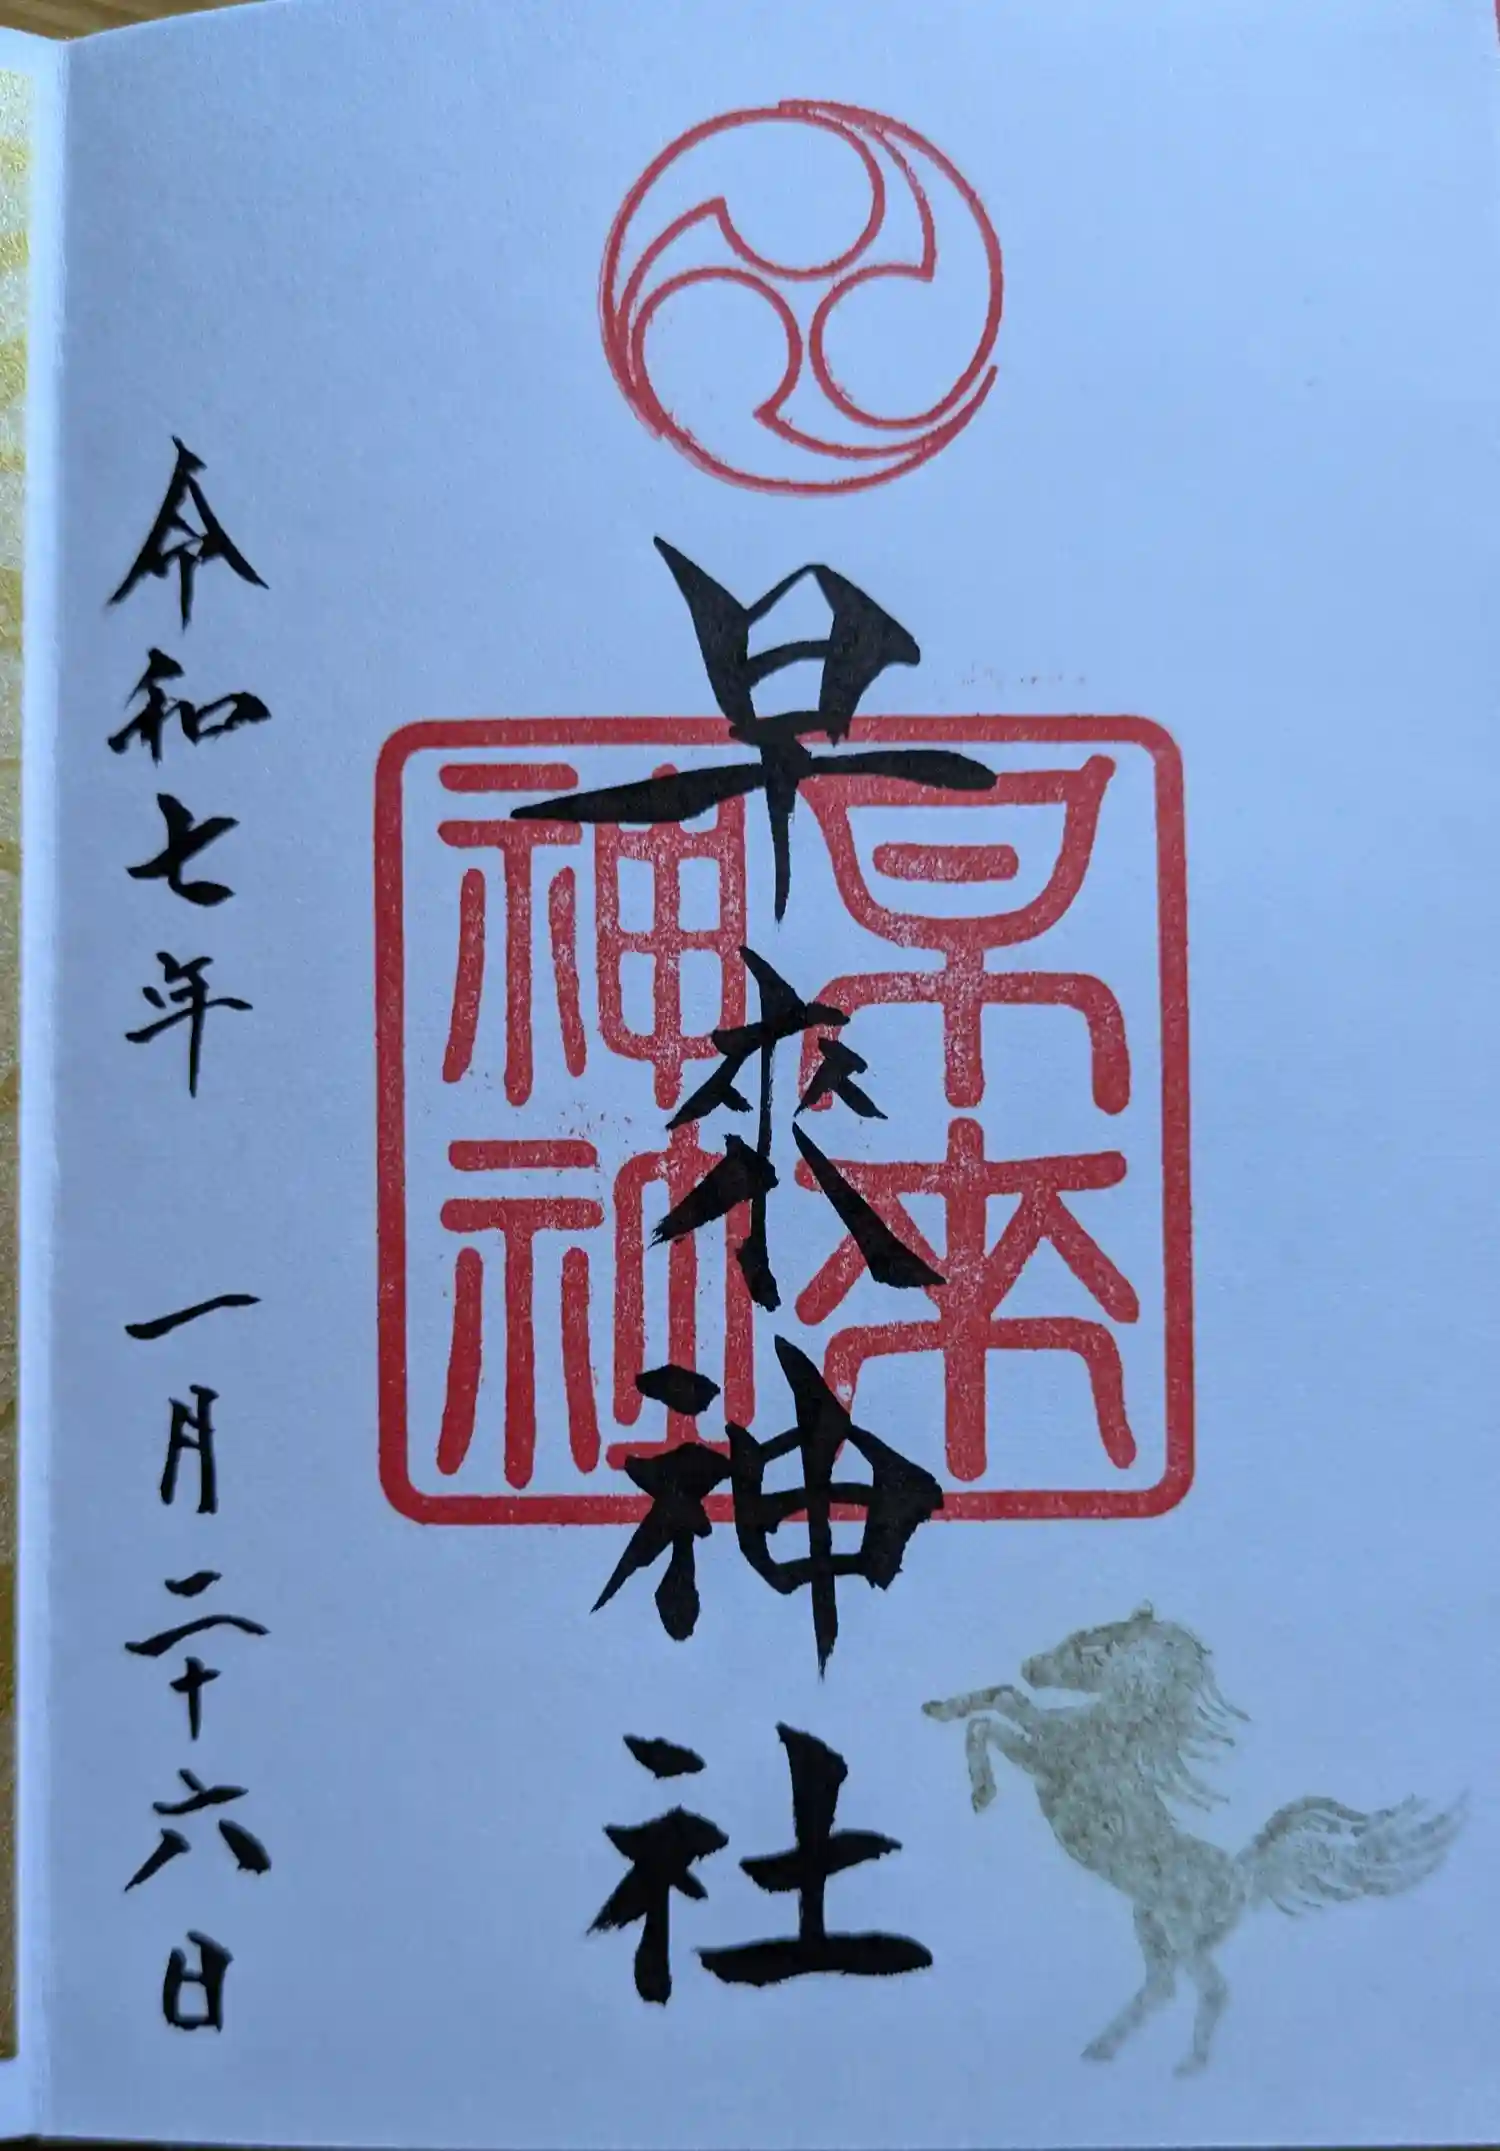 早來神社
早来
神社
令和七年 一月二十六日